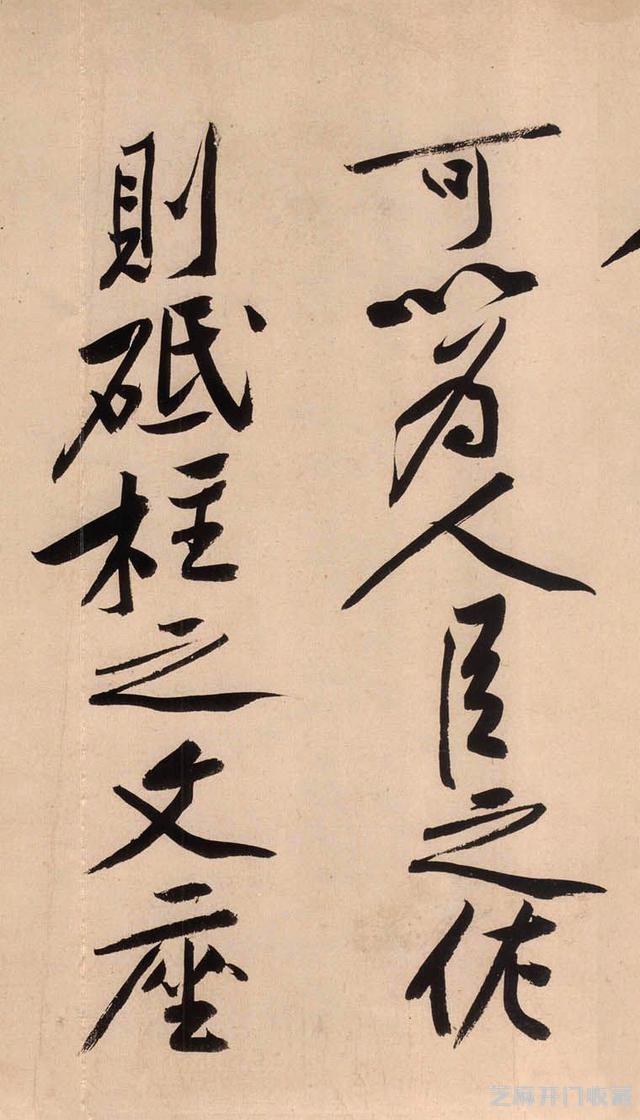 可以为人臣之佐
則砥柱之文座
艺麻开门收藏